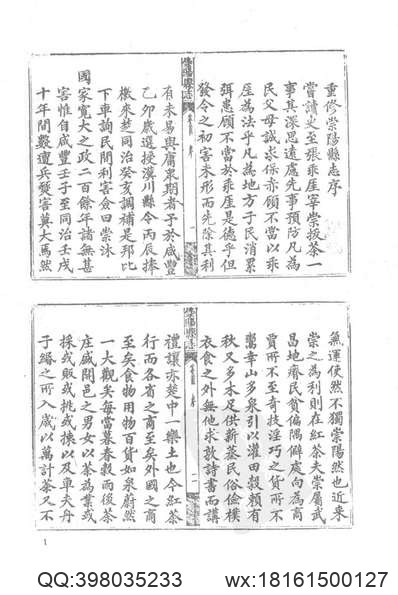 重修崇陽縣志序
嘗讀史至張乖崖宰崇拔茶一
事其深思遠慮先事預防凡為
民父母誠求保赤顧不當以乖
崖為法乎凡為地方于民消累
弭患顧不當於乖崖是德乎但
發令之初害未形而先除其利
崇陽縣志
序
一
有未易與庸衆期者予於咸豐
乙卯歲選授漢川縣令丙辰捧
檄來楚同治癸亥調補是邑比
下車詢民間利害僉曰崇沐
國家寬大之政二百餘年諸無甚
害惟自咸豐壬子至同治壬戌
十年間數遭兵燹害莫大焉然
氣運使然不獨崇陽然也近來
崇之為利則在紅茶夫崇屬武
昌地瘠民貧偏隅僻處向為商
賈所不至奇技淫巧之貨所不
鬻幸山多泉引以灌田穀頗有
秋又多木足供新蒸民俗儉樸
衣食之外無他求敦詩書而講
崇陽縣志
二
禮讓亦楚中一樂土也今紅茶
行而各省之商至矣外國之商
至矣食物用物百貨如泉蔚然
一大觀矣每當暮春穀雨後茶
庄盛開邑之男女以茶為業或
採或販或挑或揀以及車夫丹
子緡之所入歲以萬計茶又不
1
QQ:398035233 wx:18161500127